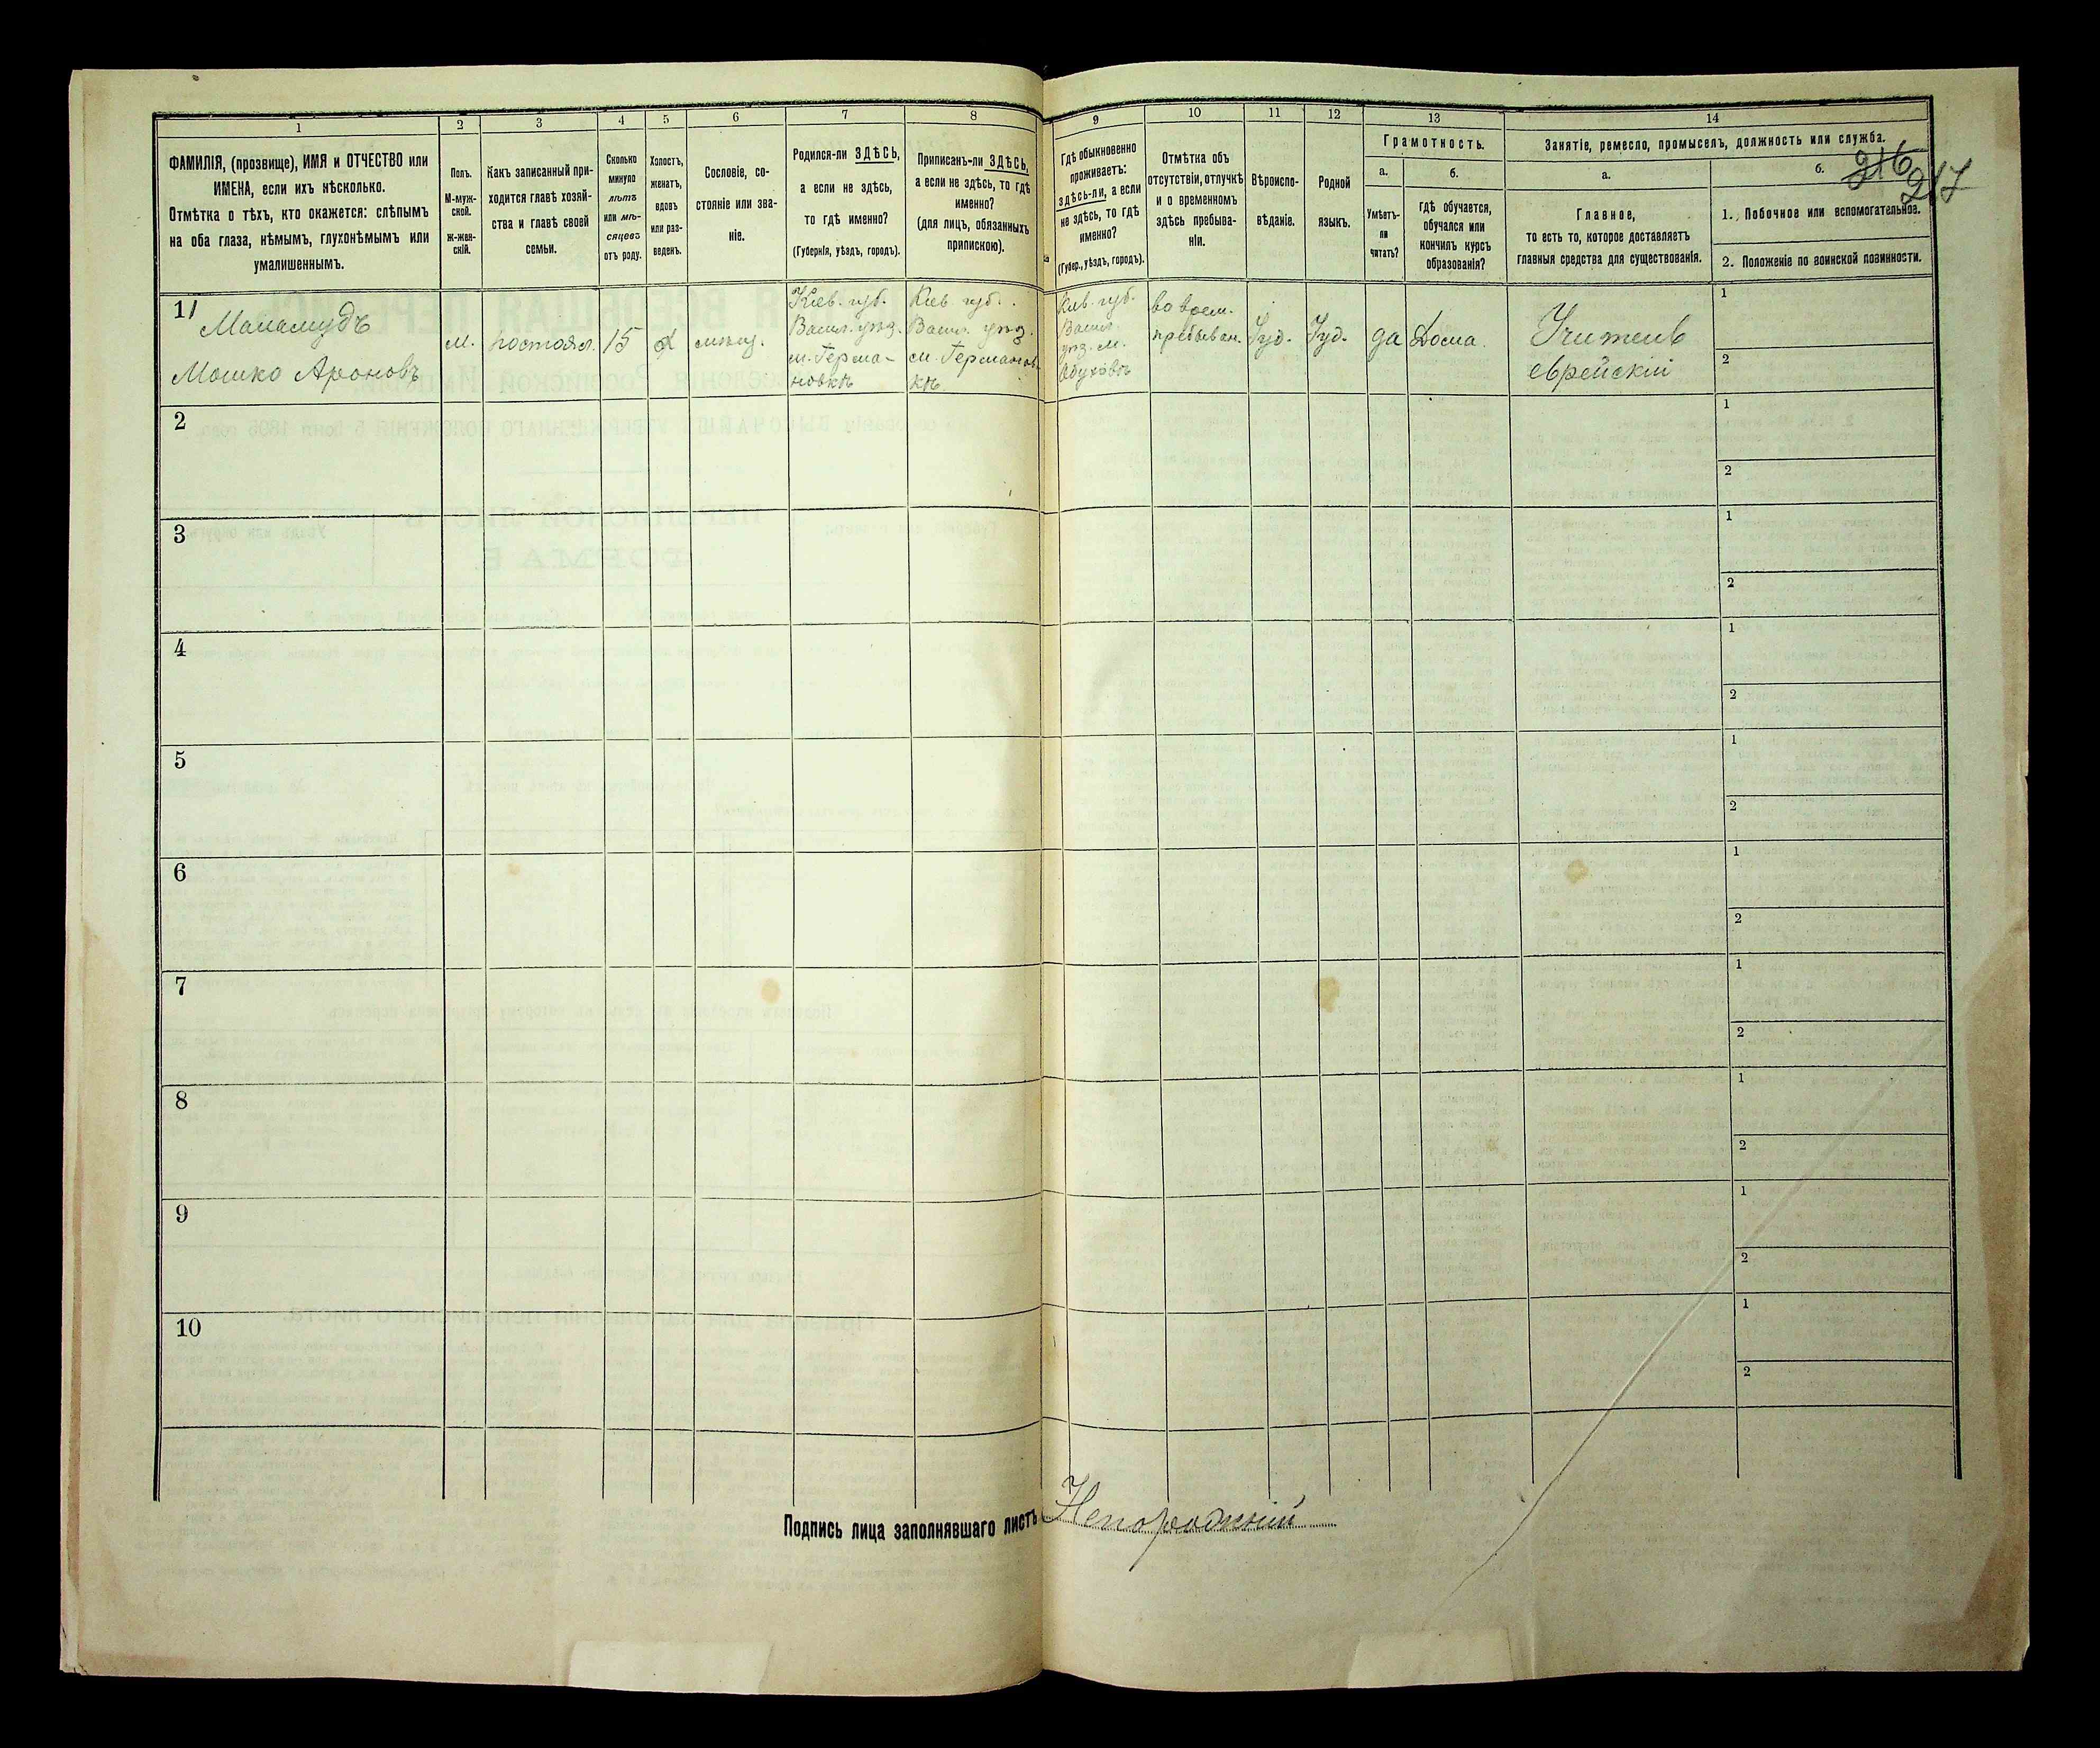 1 2 3 4 5 6 7 8 9 10 11 12 13 14
ФАМИЛІЯ, (прозвище), ИМЯ и ОТЧЕСТВО или
ИМЕНА, если ихъ нѣсколько.
Отмѣтка о тѣхъ, кто окажется: слѣпымъ
на оба глаза, нѣмымъ, глухонѣмымъ или
умалишеннымъ.
Полъ.
М-муж-
ской.
ж-жен-
скій.
Какъ записанный при-
ходится главѣ хозяй-
ства и главѣ своей
семьи.
Сколько
минуло
лѣтъ
или мѣ-
сяцевъ
отъ роду.
Холостъ,
женатъ,
вдовъ
или раз-
веденъ.
Сословіе, со-
стояніе или зва-
ніе.
Родился-ли ЗДѢСЬ,
а если не здѣсь,
то гдѣ именно?
(Губернія, уѣздъ, городъ).
Приписанъ-ли ЗДѢСЬ,
а если не здѣсь, то гдѣ
именно?
(для лицъ, обязанныхъ
припискою).
Гдѣ обыкновенно
проживаетъ:
здѣсь-ли, а если
не здѣсь, то гдѣ
именно?
(Губер., уѣздъ, городъ).
Отмѣтка объ
отсутствіи, отлучкѣ
и о временномъ
здѣсь пребыва-
ніи.
Вѣроиспо-
вѣданіе.
Родной
языкъ.
Грамотность.
а.
Умѣетъ-
ли
читать?
б.
гдѣ обучается,
обучался или
кончилъ курсъ
образованія?
Занятіе, ремесло, промыселъ, должность или служба.
а.
Главное,
то есть то, которое доставляетъ
главныя средства для существованія.
б.
216
217
1. Побочное или вспомогательное.
2. Положеніе по воинской повинности.
1
Маламудъ
Мошко Ароновъ
м.
постоял.
15
х
мѣщ.
Кіев. губ.
Васил. уѣзд.
м. Герма-
новкѣ
Кіев. губ.
Васил. уѣзд.
м. Германов-
кѣ
Кіев. губ.
Васил.
уѣз. м.
Обуховѣ
во врем.
пребыван.
Іуд.
Іуд.
да
Дома.
Учитель
еврейскій
1
2
2
1
2
3
1
2
4
1
2
5
1
2
6
1
2
7
1
2
8
1
2
9
1
2
10
1
2
Подпись лица заполнявшаго листъ